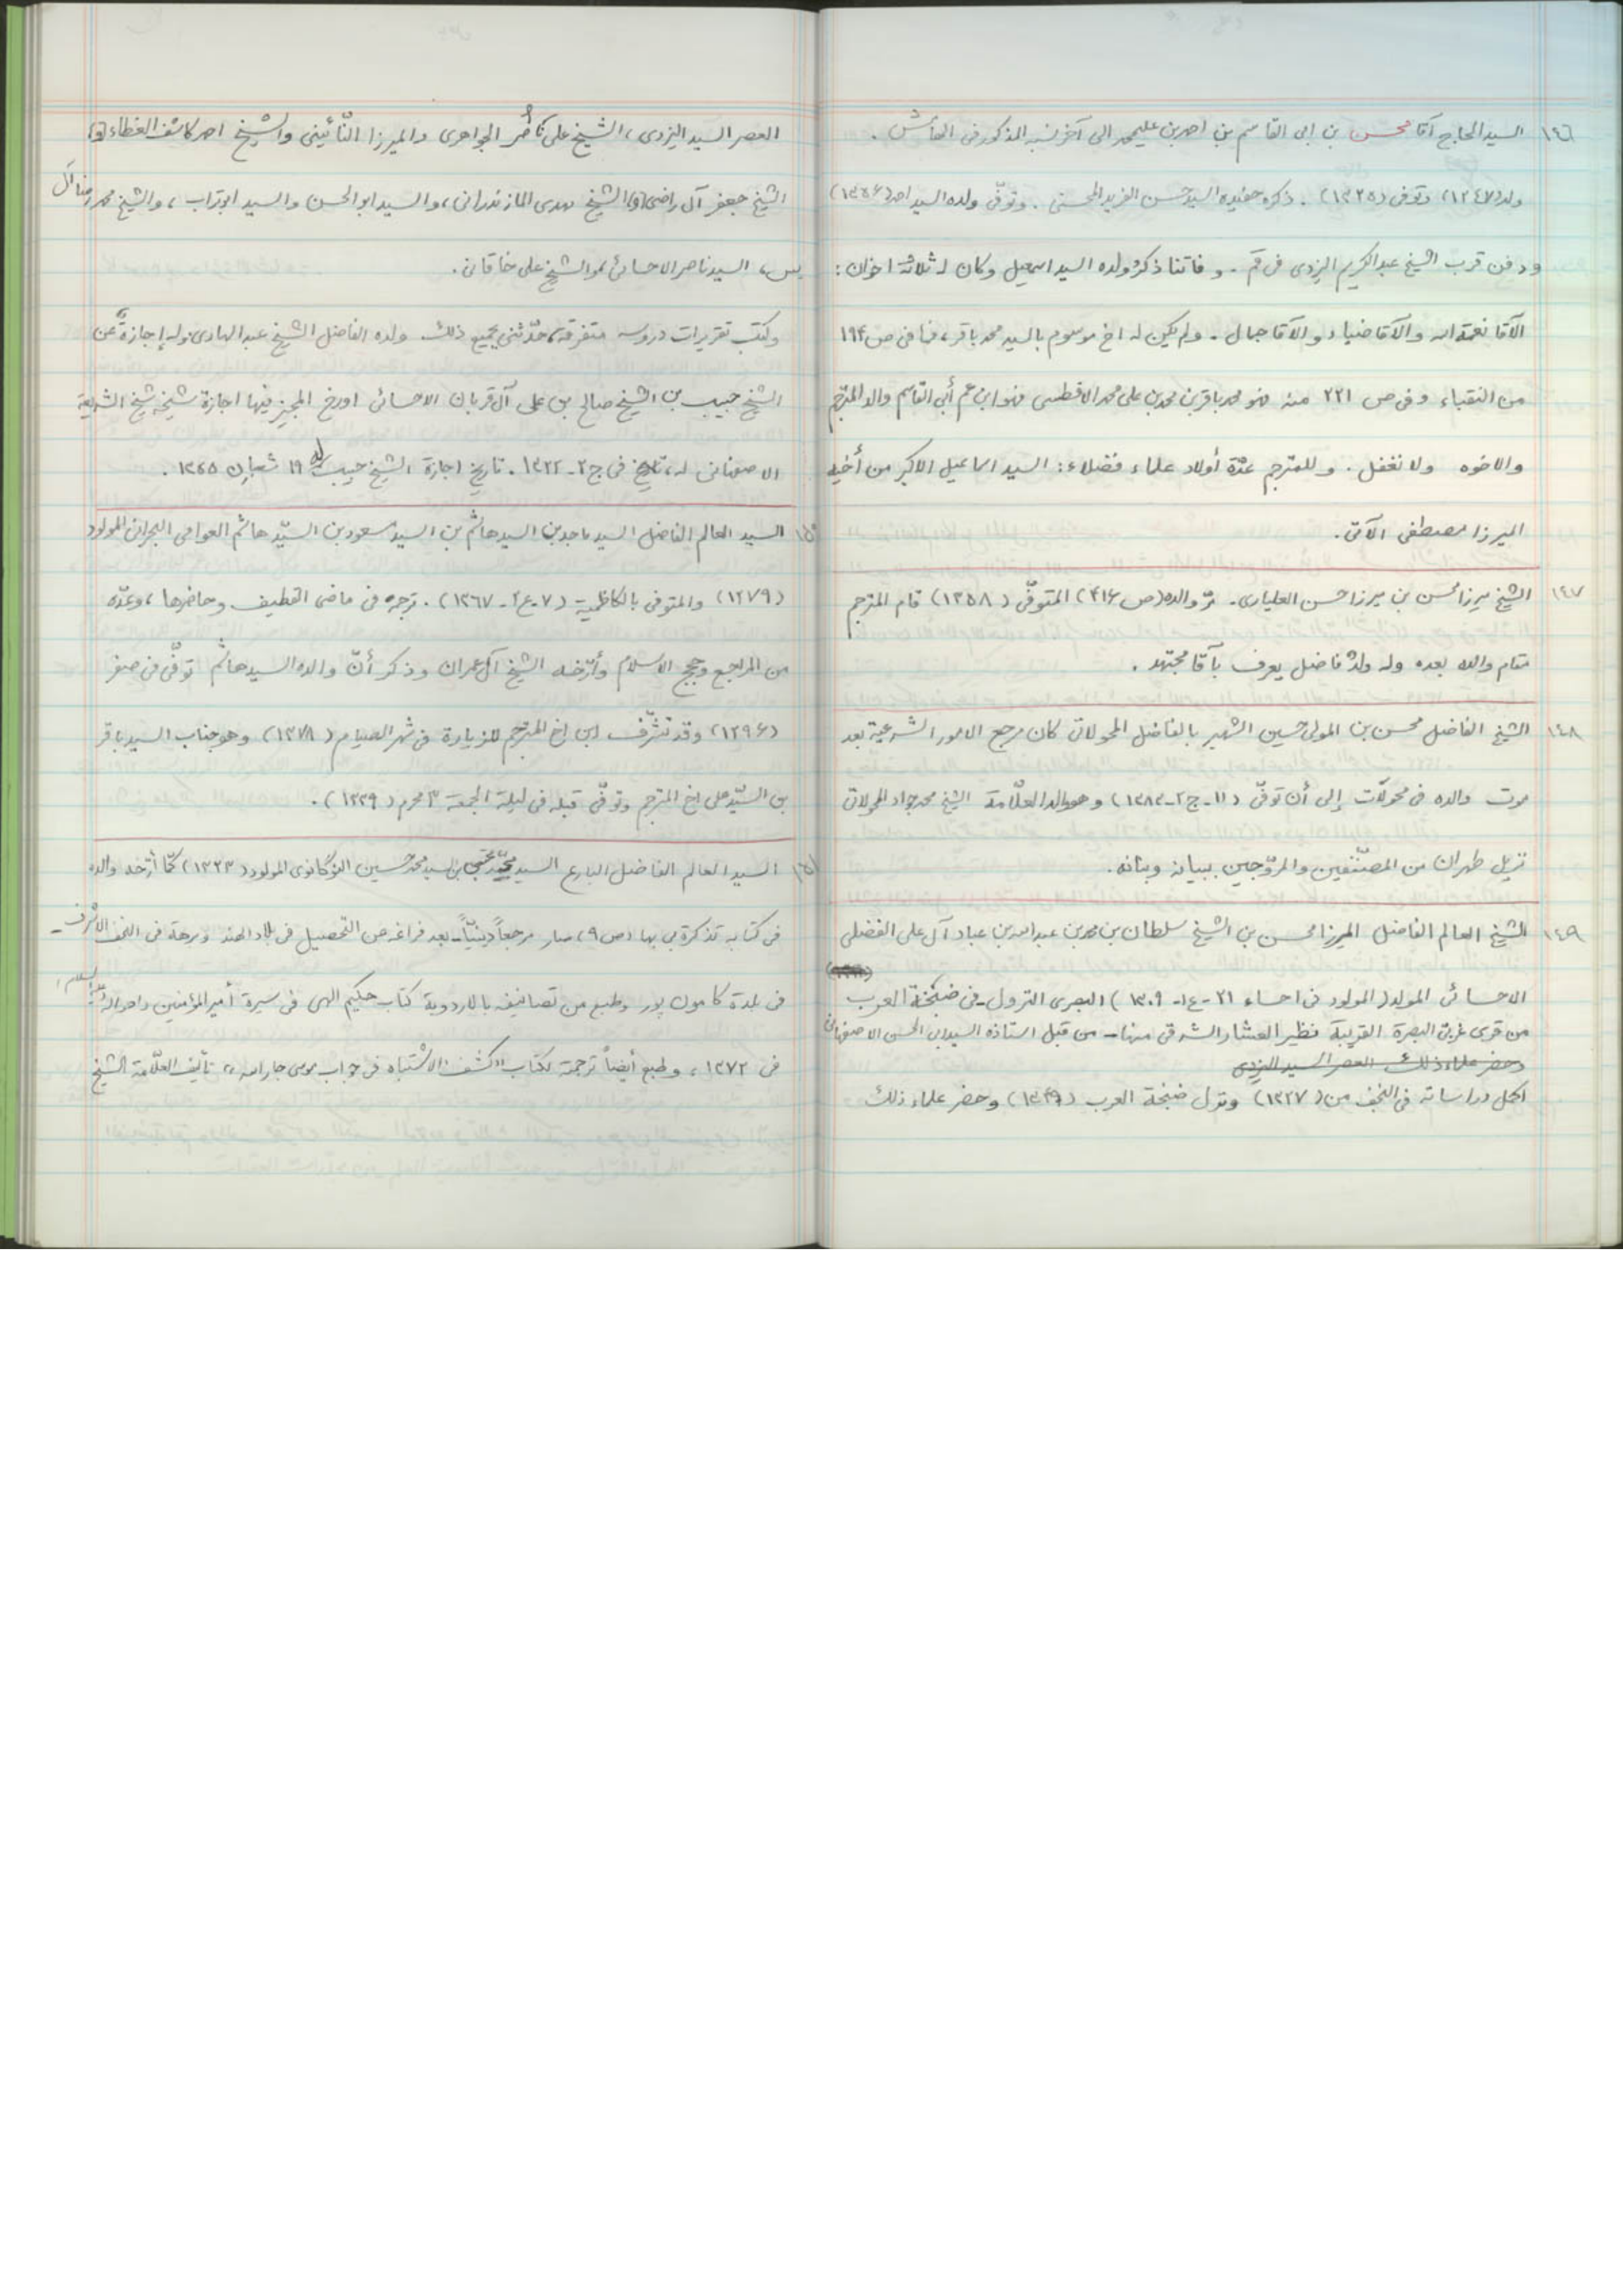 ١٤٦ السيد الحاج آقا محسن بن ابى القاسم بن احمد بن عليمحمد الى آخر نسبه المذكور فى الهامش .
ولد (١٢٤٧) وتوفى (١٣٢٥) . ذكره حفيده السيد حسن الفريد المحسنى . وتوفّى ولده السيد احمد (١٣٥۶)
ودفن قرب الشيخ عبد الكريم اليزدى فى قم - و فاتنا ذكر ولده السيد اسمعيل وكان له ثلاثة اخوان :
الآقا نعمة الله والآقا ضياء و الآقا جمال - ولم يكن له اخ موسوم بالسيد محمد باقر ، فما فى ص ١٩۴
من النقباء وفى ص ٢٢١ منه فهو محمد باقر بن محمد بن على محمد الافطسى فهو ابن عم أبى القاسم والد المترجم
والاخوه ولا تغفل . و للمترجم عدّة أولاد علماء فضلاء : السيد اسماعيل الاكبر من أخيه
الميرزا مصطفى الآتى .
١٤٧ الشيخ ميرزا محسن بن ميرزا حسن العليارى - مرّ والده (ص ۴١۶) المتوفّى (١٣٥٨) قام المترجم
مقام والده بعده وله ولد فاضل يعرف بآقا مجتهد .
١٤٨ الشيخ الفاضل محسن بن المولى حسين الشهير بالفاضل المحولاتى كان مرجع الامور الشرعية بعد
موت والده فى محولّات إلى أن توفّى (١١ - ج ٢ - ١٣٨٣) وهو والد العلّامة الشيخ محمد جواد المحولاتى
نزيل طهران من المصنّفين والمروّجين ببيانه وبنانه .
١٤٩ الشيخ العالم الفاضل الميرزا محسن بن الشيخ سلطان بن محمد بن عبد الله بن عباد آل على الفضلى
الاحسائى المولد (المولود فى احساء ٢١ - ع١ - ١٣٠٩) البصرى النزول - فى ضبخة العرب
من قرى غربى البصرة القريبة نظير العشار الشرقى منها - من قبل استاذه السيد ابى الحسن الاصفهانى
وحضر علماء ذلك العصر السيد اليزدى
اكمل دراساته فى النجف من (١٣٢٧) ونزل ضبخة العرب (١٣۴٩) وحضر علماء ذلك
العصر السيد اليزدى ، الشيخ على ناصر الجواهرى والميرزا النّائينى والشيخ احمد كاشف الغطاء (و)
الشيخ جعفر آل راضى (و) الشيخ مهدى المازندرانى ، والسيد ابو الحسن والسيد ابوتراب ، والشيخ محمد رضا آل
يس ، السيد ناصر الاحسائى والشيخ على خاقانى .
وكتب تقريرات دروسه متفرقة ، حدّثنى بجميع ذلك . ولده الفاضل الشيخ عبد الهادى وله إجازةً عن
الشيخ حبيب بن الشيخ صالح بن على آل قربان الاحسائى اورخ المجيز فيها اجازة شيخه شيخ الشريعة
الاصفهانى له ، فى ج ٢ - ١٣٢٢ . تاريخ اجازة الشيخ حبيب له ١٩ شعبان ١٣٥٥ .
١٥٠ السيد العالم الفاضل السيد ماجد بن السيد هاشم بن السيد مسعود بن السيّد هاشم العوامى البحرانى المولود
(١٢٧٩) والمتوفى بالكاظمية (٧ - ع٢ - ١٣٦٧) . ترجمه فى ماضى القطيف وحاضرها ، وعدّه
من المراجع وحجج الاسلام وأرّخه الشيخ آل عمران وذكر أنّ والده السيد هاشم توفّى فى صفر
(١٢٩۶) وقد تشرّف ابن اخ المترجم للزيارة فى شهر الصيام (١٣٧٨) وهو جناب السيد باقر
بن السيّد على اخ المترجم وتوفّى قبله فى ليلة الجمعة ٣ محرم (١٣٣٩) .
١٥١ السيد العالم الفاضل البارع السيد مجتبى بن سيد محمد حسين النوكانوى المولود (١٣٢٣) كما أرّخه والده
فى كتابه تذكرة بى بها (ص ٩) صار مرجعاً دينيّاً - بعد فراغه من التحصيل فى بلاد الهند وبرهة فى النجف الاشرف -
فى بلدة كامون پور وطبع من تصانيفه بالاردوية كتاب حكيم الهى فى سيرة أمير المؤمنين واحواله عليه السلام
فى ١٣٧٢ ، وطبع أيضاً ترجمة لكتاب "كشف الاشتباه فى جواب موسى جار الله" تأليف العلّامة الشيخ